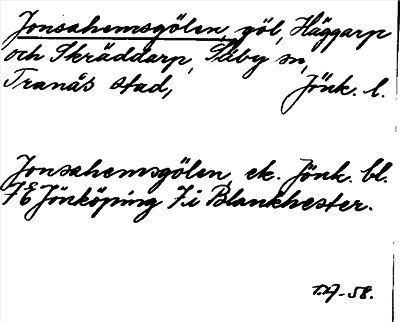 Jonsahemsgölen, göl, Häggarp
och Skräddarp, Säby sn,
Tranås stad, Jönk. l.
Jonsahemsgölen, ek. Jönk. bl.
7 E Jönköping 7.i Blankhester.
-58.